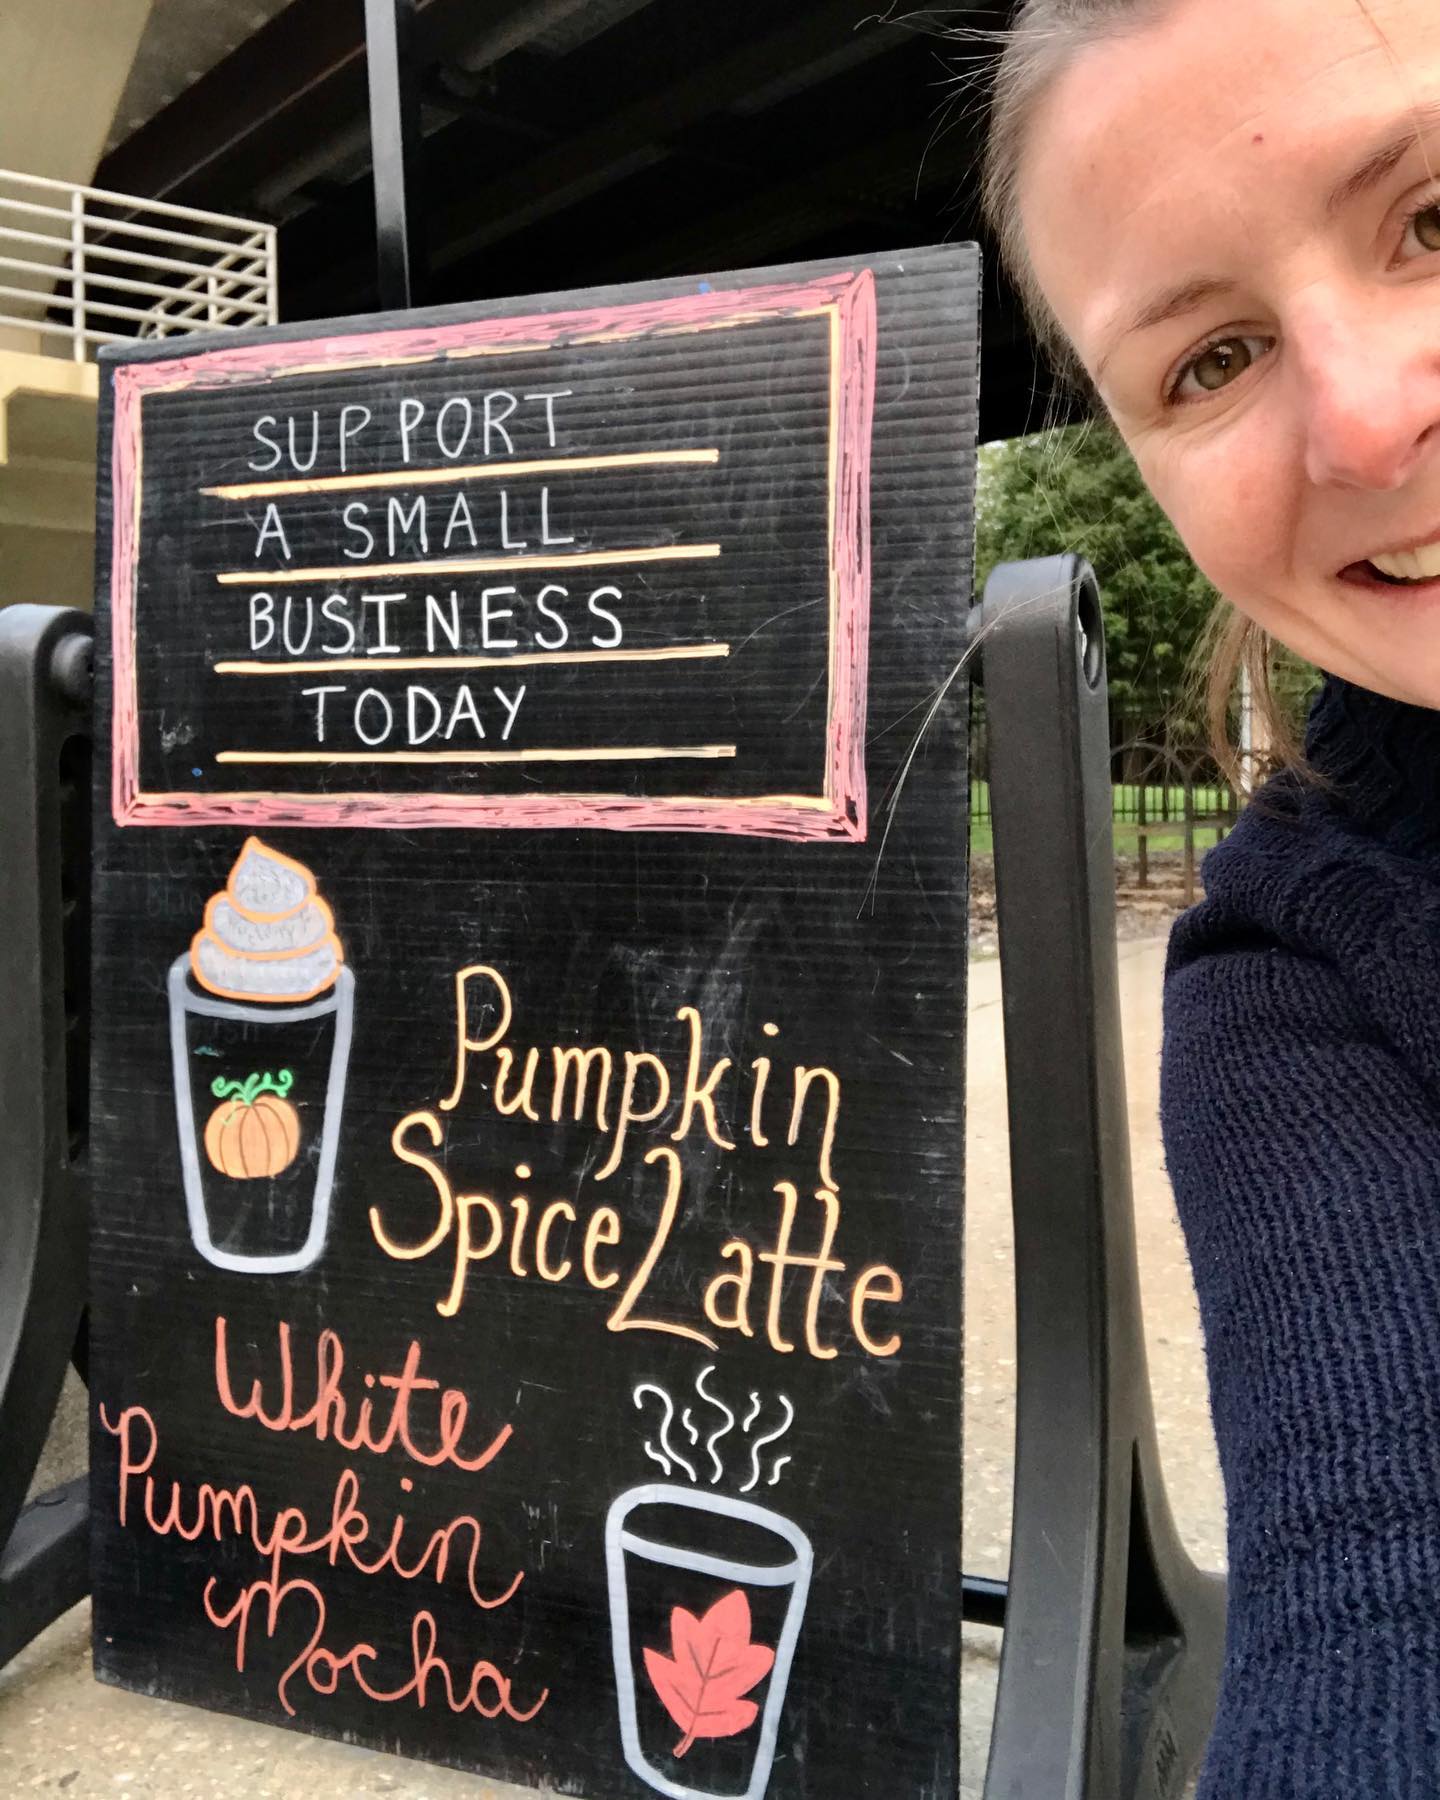 SUPPORT
A SMALL
BUSINESS
TODAY
Pumpkin
Spice Latte
White
Pumpkin
Mocha